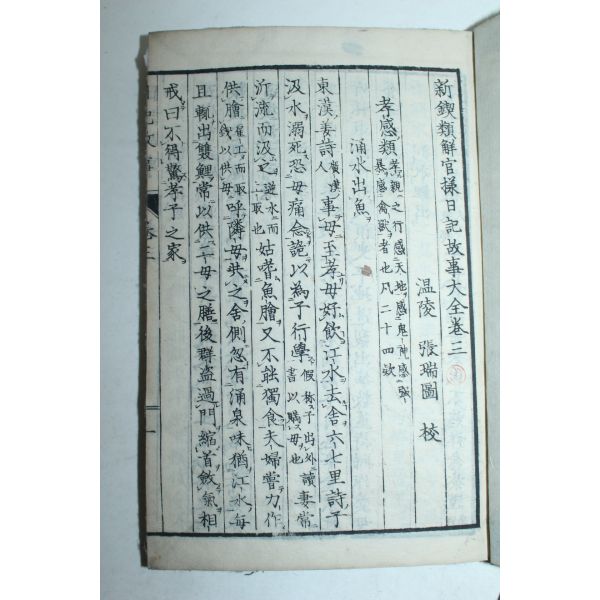 新鍥類解官様日記故事大全卷三
温陵 張瑞圖 校
孝感類 孝親之行感天地感鬼神感強暴感禽獣者也凡二十四效
涌水出魚
東漢姜詩 廣漢人 事母至孝母好飲江水去舍六七里詩子
汲水溺死恐母痛念詭以為子行學 假称子出外讀書以瞞母也 妻常
泝流而汲之 逆水而上取也 姑嗜魚膾又不能獨食夫婦嘗力作
供膾 雇工而取錢以供母 呼隣母共之舍側忽有涌泉味猶江水每
旦輒出雙鯉常以供二母之膳後群盗過門縮首斂氣相
戒曰不得驚孝子之家